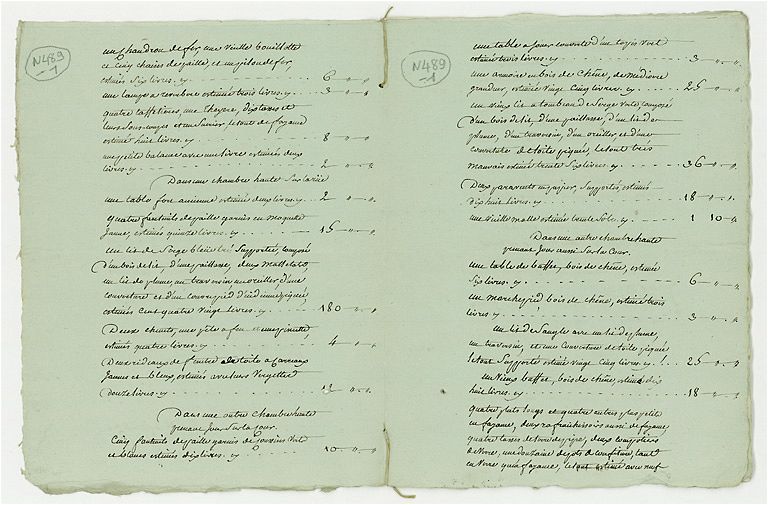 N489
-1
un chaudron de fer, une vieille bouillotte
et cinq chaises de paille, et un pilon de fer,
estimés six livres. cy - - - 6 " "
quatre caffetières, une theyere, dix tasses et
estimé huit livres. cy - - - 8 " "
une petite balance avec une livre estimées deux
livres. cy - - - 2 " "
Dans une chambre haute sur la rüe
une table fort ancienne estimée deux livres. cy - - 2 " "
quatre fauteuils de paille garnis en moquette
jaunes, estimés quinze livres. cy - - - 15 " "
un lit de Serge bleüe supporté, composé
d'un bois de lit, d'une paillasse, deux mattelats,
un lit de plume, un traversin un oreiller, d'une
couverture et d'un couvrepied d'indienne piquée
estimés cent quatre vingt livres. cy - - - 180 " "
Deux chenets, une pele a feu et une pincette
estimés quatre livres. cy - - - 4 " "
Deux rideaux de fenetre de toile a carreaux
jaunes et bleus, estimés avec leurs Vergettes
douze livres. cy - - - 12 " "
Dans une autre chambre haute
prenant jour sur la Cour.
Cinq fauteuils de paille garnis de Coussins Verts
et blancs estimés dix livres. cy - - - 10 " "
N489
-1
une table a jouer couverte d'un tapis Vert
estimée trois livres. cy - - - 3 " "
une armoire en bois de chêne, de médiocre
grandeur, estimée vingt cinq livres. cy - - - 25 " "
un vieux lit a tombeau de Serge Verte, composé
d'un bois de lit, d'une paillasse, d'un lit de
plume, d'un traversin, d'un oreiller, et d'une
couverture de toile piquée, le tout très
mauvais estimé trente six livres. cy - - - 36 " "
Deux paravents en papier, supportés, estimés
dix huit livres. cy - - - 18 " "
une vieille malle estimée trente Sols. cy - - - 1 10 "
Dans une autre chambre haute
prenant jour aussi sur la Cour.
une table de buffet, bois de chêne, estimée
Six livres. cy - - - 6 " "
un marchepied bois de chêne, estimé trois
livres cy - - - 3 " "
un lit de Sangle avec un lit de plume,
un traversin, et une Couverture de toile piquée
le tout supporté estimé vingt cinq livres. cy - - 25 " "
un Vieux buffet, bois de chêne, estimé dix
huit livres. cy - - - 18 " "
quatre plats longs et quatre autres plus petits
en fayance, deux rafraichissoirs aussi de fayance,
quatre tasses de terre de pipe, deux
de Verre, une douzaine de pots de confiture, tant
en Verre qu'en fayance, le tout estimé avec neuf